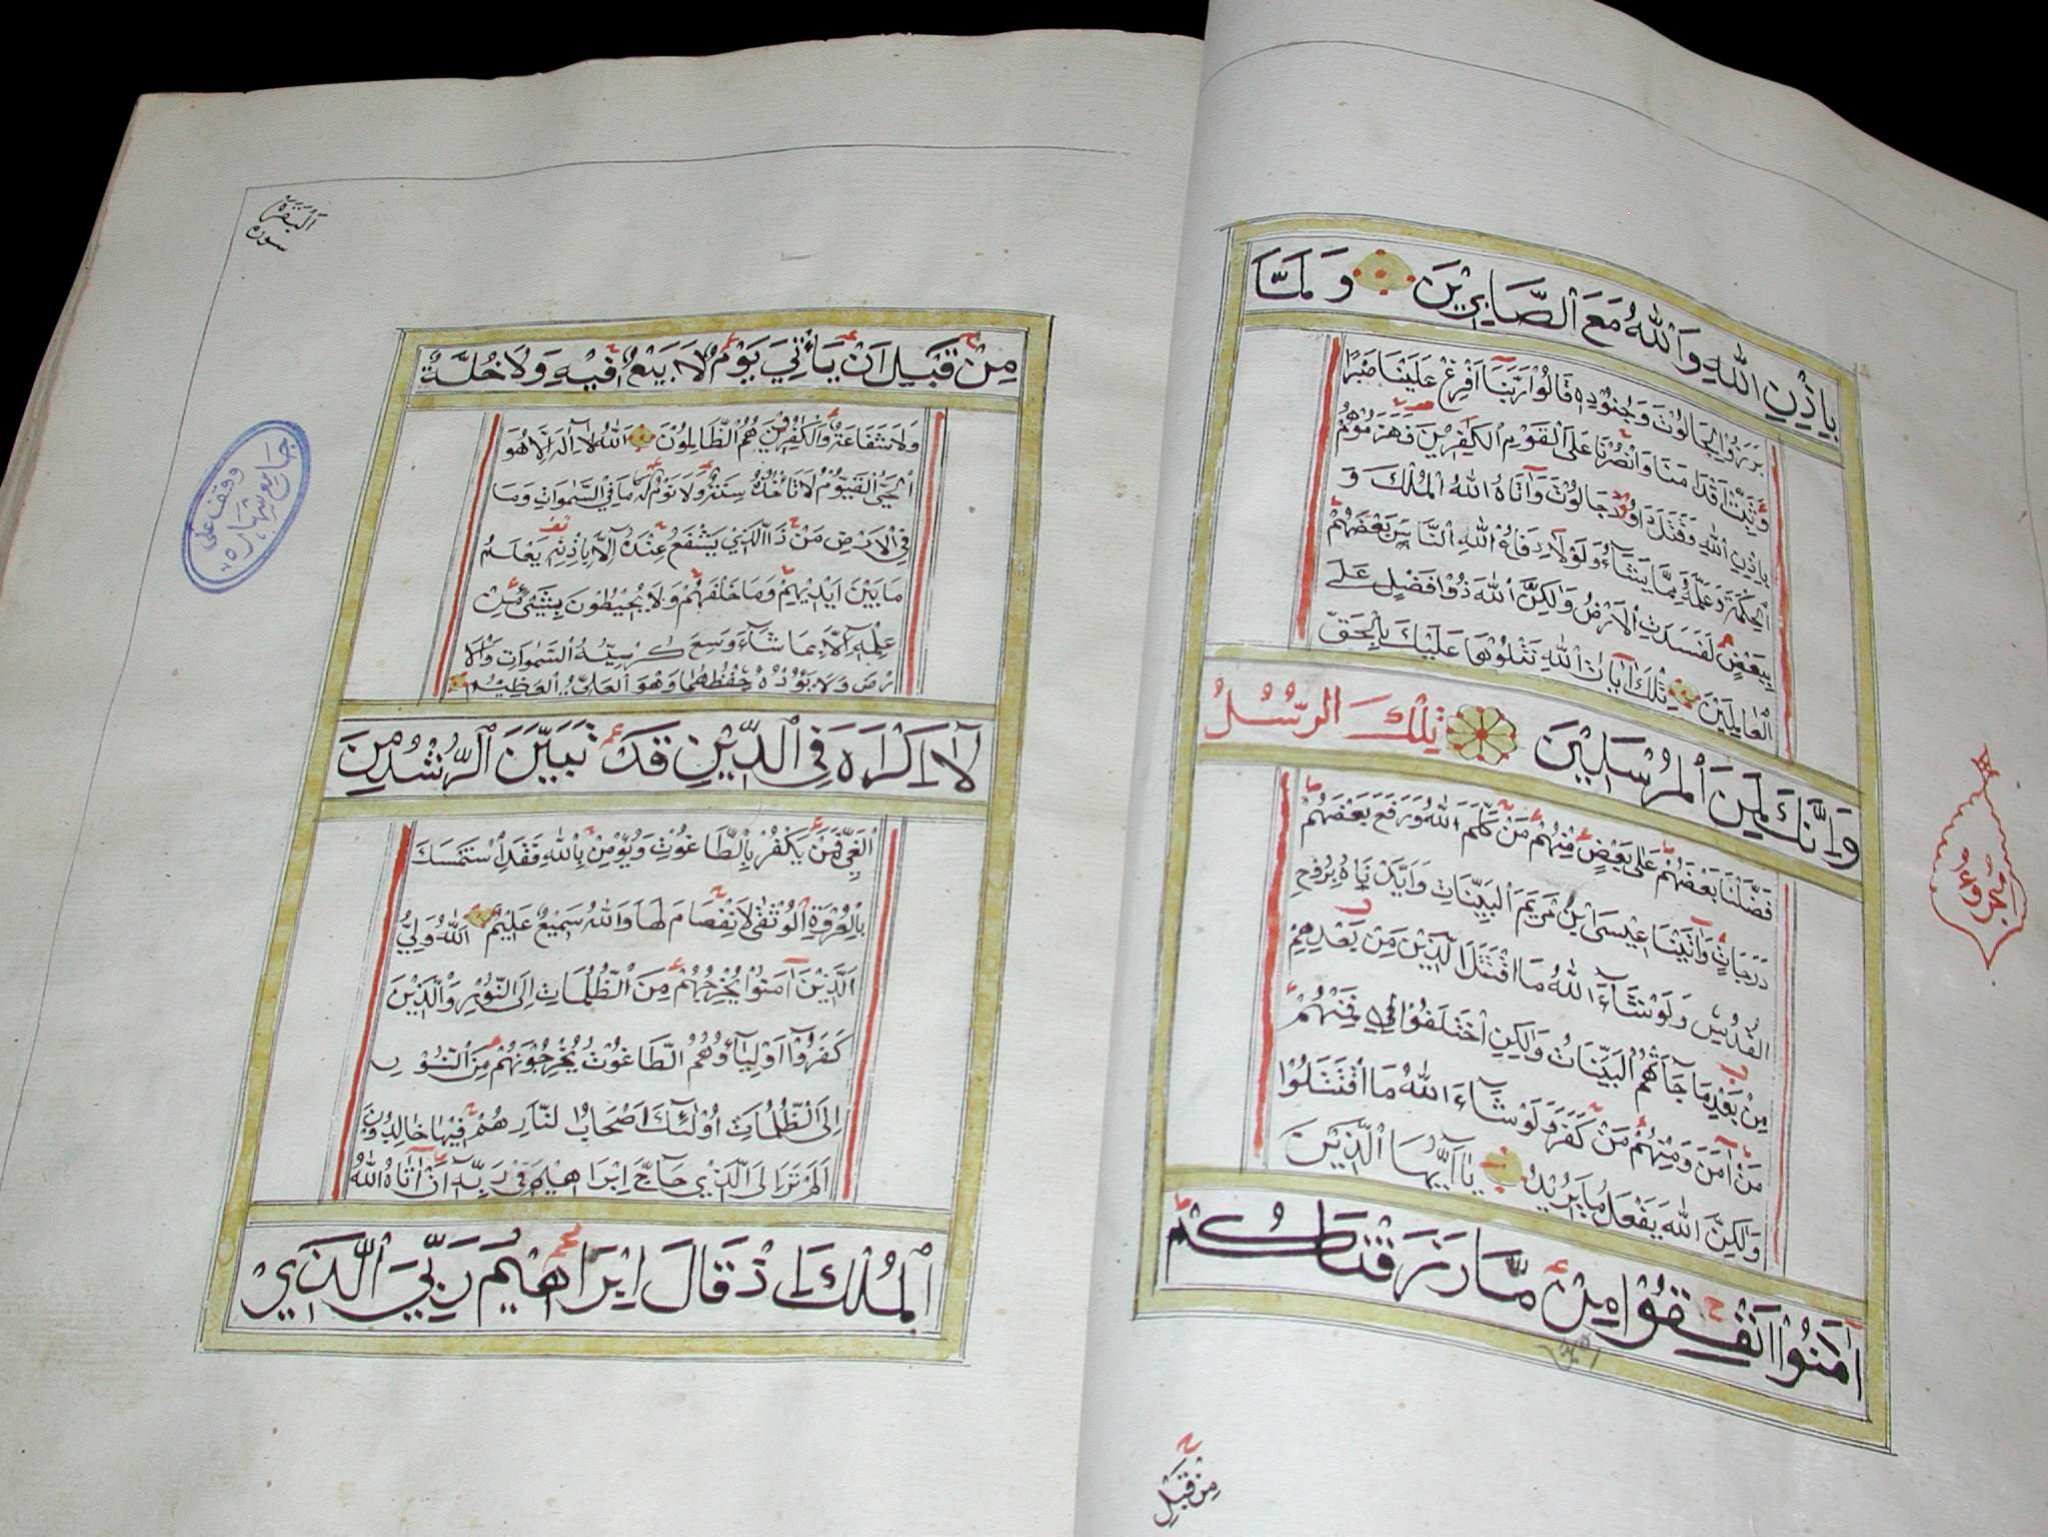 بِإِذْنِ اللَّهِ وَاللَّهُ مَعَ الصَّابِرِينَ وَلَمَّا
بَرَزُوا لِجَالُوتَ وَجُنُودِهِ قَالُوا رَبَّنَا أَفْرِغْ عَلَيْنَا صَبْرًا
وَثَبِّتْ أَقْدَامَنَا وَانْصُرْنَا عَلَى الْقَوْمِ الْكَافِرِينَ فَهَزَمُوهُمْ
بِإِذْنِ اللَّهِ وَقَتَلَ دَاوُدُ جَالُوتَ وَآتَاهُ اللَّهُ الْمُلْكَ وَ
الْحِكْمَةَ وَعَلَّمَهُ مِمَّا يَشَاءُ وَلَوْلَا دِفَاعُ اللَّهِ النَّاسَ بَعْضَهُمْ
بِبَعْضٍ لَفَسَدَتِ الْأَرْضُ وَلَكِنَّ اللَّهَ ذُو فَضْلٍ عَلَى
الْعَالَمِينَ تِلْكَ آيَاتُ اللَّهِ نَتْلُوهَا عَلَيْكَ بِالْحَقِّ
وَإِنَّكَ لَمِنَ الْمُرْسَلِينَ تِلْكَ الرُّسُلُ
فَضَّلْنَا بَعْضَهُمْ عَلَى بَعْضٍ مِنْهُمْ مَنْ كَلَّمَ اللَّهُ وَرَفَعَ بَعْضَهُمْ
دَرَجَاتٍ وَآتَيْنَا عِيسَى ابْنَ مَرْيَمَ الْبَيِّنَاتِ وَأَيَّدْنَاهُ بِرُوحِ
الْقُدُسِ وَلَوْ شَاءَ اللَّهُ مَا اقْتَتَلَ الَّذِينَ مِنْ بَعْدِهِمْ
مِنْ بَعْدِ مَا جَاءَتْهُمُ الْبَيِّنَاتُ وَلَكِنِ اخْتَلَفُوا فَمِنْهُمْ
مَنْ آمَنَ وَمِنْهُمْ مَنْ كَفَرَ وَلَوْ شَاءَ اللَّهُ مَا اقْتَتَلُوا
وَلَكِنَّ اللَّهَ يَفْعَلُ مَا يُرِيدُ يَا أَيُّهَا الَّذِينَ
آمَنُوا أَنْفِقُوا مِمَّا رَزَقْنَاكُمْ
مِنْ قَبْلِ
سورة
البقرة
مِنْ قَبْلِ أَنْ يَأْتِيَ يَوْمٌ لَا بَيْعٌ فِيهِ وَلَا خُلَّةٌ
وَلَا شَفَاعَةٌ وَالْكَافِرُونَ هُمُ الظَّالِمُونَ اللَّهُ لَا إِلَهَ إِلَّا هُوَ
الْحَيُّ الْقَيُّومُ لَا تَأْخُذُهُ سِنَةٌ وَلَا نَوْمٌ لَهُ مَا فِي السَّمَوَاتِ وَمَا
فِي الْأَرْضِ مَنْ ذَا الَّذِي يَشْفَعُ عِنْدَهُ إِلَّا بِإِذْنِهِ يَعْلَمُ
مَا بَيْنَ أَيْدِيهِمْ وَمَا خَلْفَهُمْ وَلَا يُحِيطُونَ بِشَيْءٍ مِنْ
عِلْمِهِ إِلَّا بِمَا شَاءَ وَسِعَ كُرْسِيُّهُ السَّمَوَاتِ وَالْأَ
رْضَ وَلَا يَؤُدُهُ حِفْظُهُمَا وَهُوَ الْعَلِيُّ الْعَظِيمُ
لَا إِكْرَاهَ فِي الدِّينِ قَدْ تَبَيَّنَ الرُّشْدُ مِنَ
الْغَيِّ فَمَنْ يَكْفُرْ بِالطَّاغُوتِ وَيُؤْمِنْ بِاللَّهِ فَقَدِ اسْتَمْسَكَ
بِالْعُرْوَةِ الْوُثْقَى لَا انْفِصَامَ لَهَا وَاللَّهُ سَمِيعٌ عَلِيمٌ اللَّهُ وَلِيُّ
الَّذِينَ آمَنُوا يُخْرِجُهُمْ مِنَ الظُّلُمَاتِ إِلَى النُّورِ وَالَّذِينَ
كَفَرُوا أَوْلِيَاؤُهُمُ الطَّاغُوتُ يُخْرِجُونَهُمْ مِنَ النُّورِ
إِلَى الظُّلُمَاتِ أُولَئِكَ أَصْحَابُ النَّارِ هُمْ فِيهَا خَالِدُونَ
أَلَمْ تَرَ إِلَى الَّذِي حَاجَّ إِبْرَاهِيمَ فِي رَبِّهِ أَنْ آتَاهُ اللَّهُ
الْمُلْكَ إِذْ قَالَ إِبْرَاهِيمُ رَبِّيَ الَّذِي
وقف على
جامع شهاره